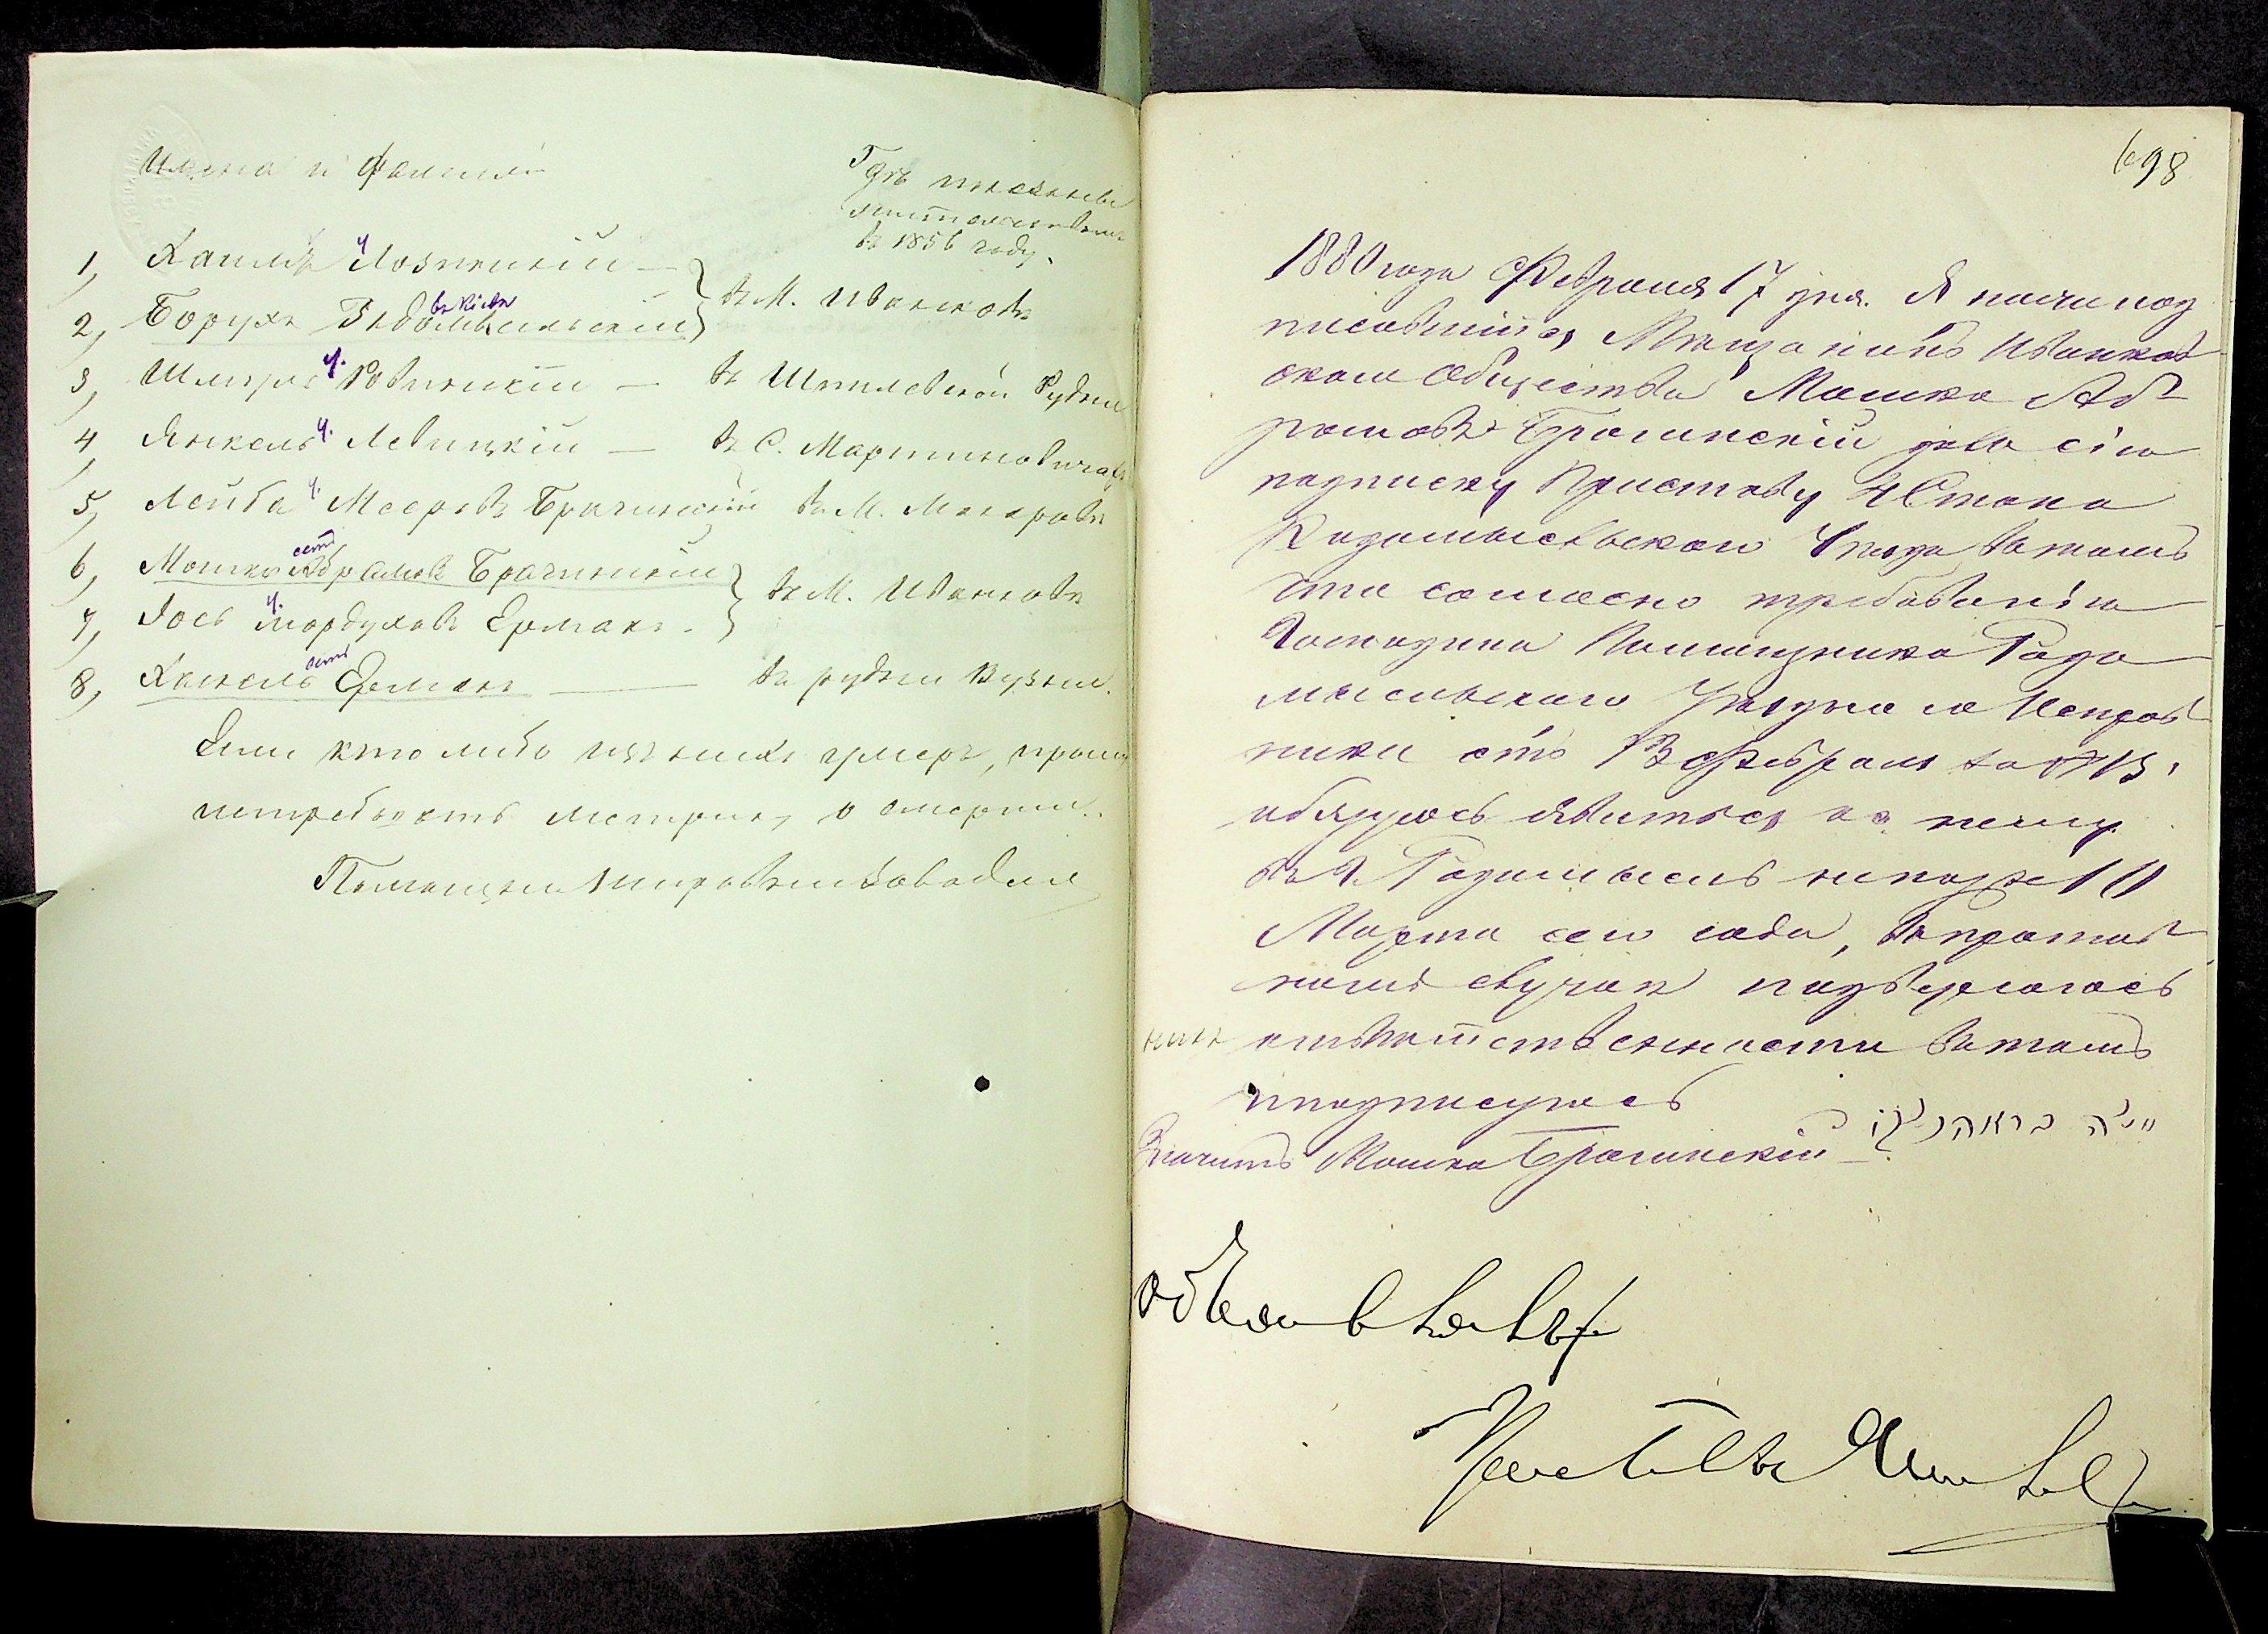 Имена и фамилии
Гдѣ
жительствовали
въ 1856 году.
1, Хаимъ ч. Лозинскій —
въ М. Иванковѣ
въ Кіевѣ
2, Борухъ
3, Шмуль ч. Ровинскій — въ Шпилевской Рудни
4, Янкель ч. Левицкій — въ С. Мартиновичахъ
5, Лейба ч. Мееровъ Брагинскій въ М. Макаровѣ
есть
6, Мошко Абрамовъ Брагинскій
въ М. Иванковѣ
7, Іось ч. Мордуховъ Ерманъ.
есть
8, Хаскель Ерманъ — въ рудни Кузни.
Если кто либо изъ нихъ умеръ, прошу
истребовать метрику о смерти.
698
1880 года Февраля 17 дня. Я нижепод
писавшійся, Мѣщанинъ Иванков
скаго Общества Мошко Аб
рамовъ Брагинскій даю сію
подписку Приставу 4 Стана
Радомысльскаго Уѣзда въ томъ
что согласно требованію
Господина Помощника Радо
мысльскаго Уѣзднаго Исправ
ника отъ 13 Февраля за №
обязуюсь явиться къ нему
въ Г. Радомысль непозже 10
Марта сего года, въ против
номъ случаѣ подвергаюсь
отвѣтственности въ томъ
и подписуюсь
משה בראהינסקי
Значитъ Мошко Брагинскій
Приставъ